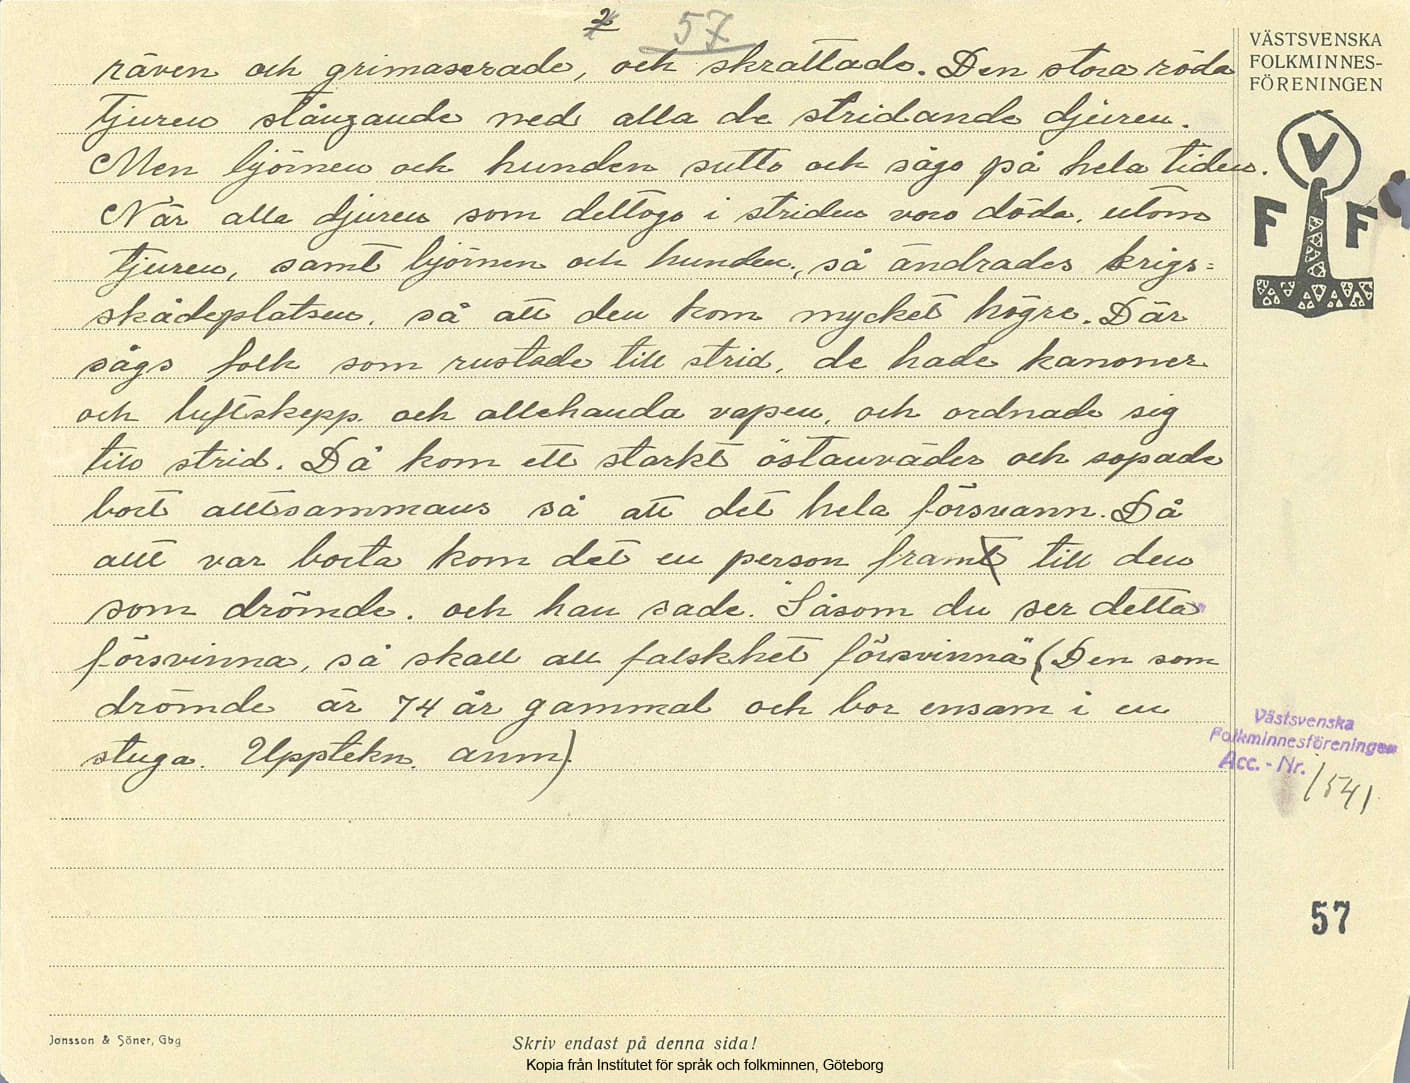 2
57
VÄSTSVENSKA
FOLKMINNES-
FÖRENINGEN
V
F F
räven och grimaserade, och skrattade. Den stora röda
tjuren stångande ned alla de stridande djuren.
Men björnen och hunden sutto och sågo på hela tiden.
När alla djuren som deltogo i striden voro döda, utom
tjuren, samt björnen och hunden, så ändrades krigs=
skådeplatsen, så att den kom mycket högre. Där
sågs folk som rustade till strid, de hade kanoner
och luftskepp och allehanda vapen, och ordnade sig
till strid. Då kom ett starkt östanväder och sopade
bort alltsammans så att det hela försvann. Då
allt var borta kom det en person fram till den
som drömde. och han sade. "Såsom du ser detta
försvinna, så skall all falskhet försvinna" (Den som
drömde är 74 år gammal och bor ensam i en
stuga. Upptekn. anm.)
Västsvenska
Folkminnesföreningen
Acc. - Nr. 1541
57
Jonsson & Söner, Gbg
Skriv endast på denna sida!
Kopia från Institutet för språk och folkminnen, Göteborg